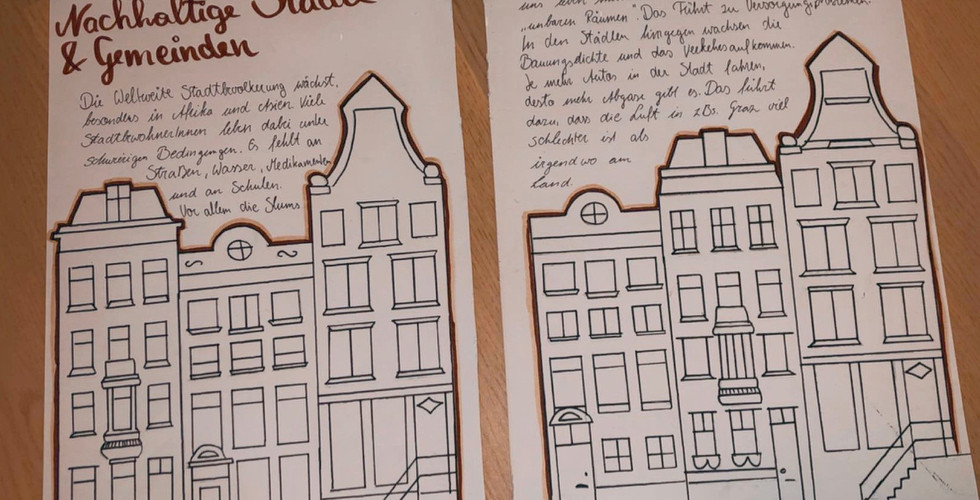 Nachhaltige Städte
& Gemeinden
Die Weltweite Stadtbevölkerung wächst,
besonders in Afrika und Asien Viele
StadtbewohnerInnen leben dabei unter
schwierigen Bedingungen. Es fehlt an
Straßen, Wasser, Medikamenten
und an Schulen.
Vor allem die Slums
uns
„unbaren Räumen". Das Führt zu Versorgungsproblemen.
In den Städten hingegen wachsen die
Bauungsdichte und das Verkehrsaufkommen.
Je mehr Autos in der Stadt fahren,
desto mehr Abgase gibt es. Das führt
dazu, dass die Luft in zBs. Graz viel
schlechter ist als
irgendwo am
Land.